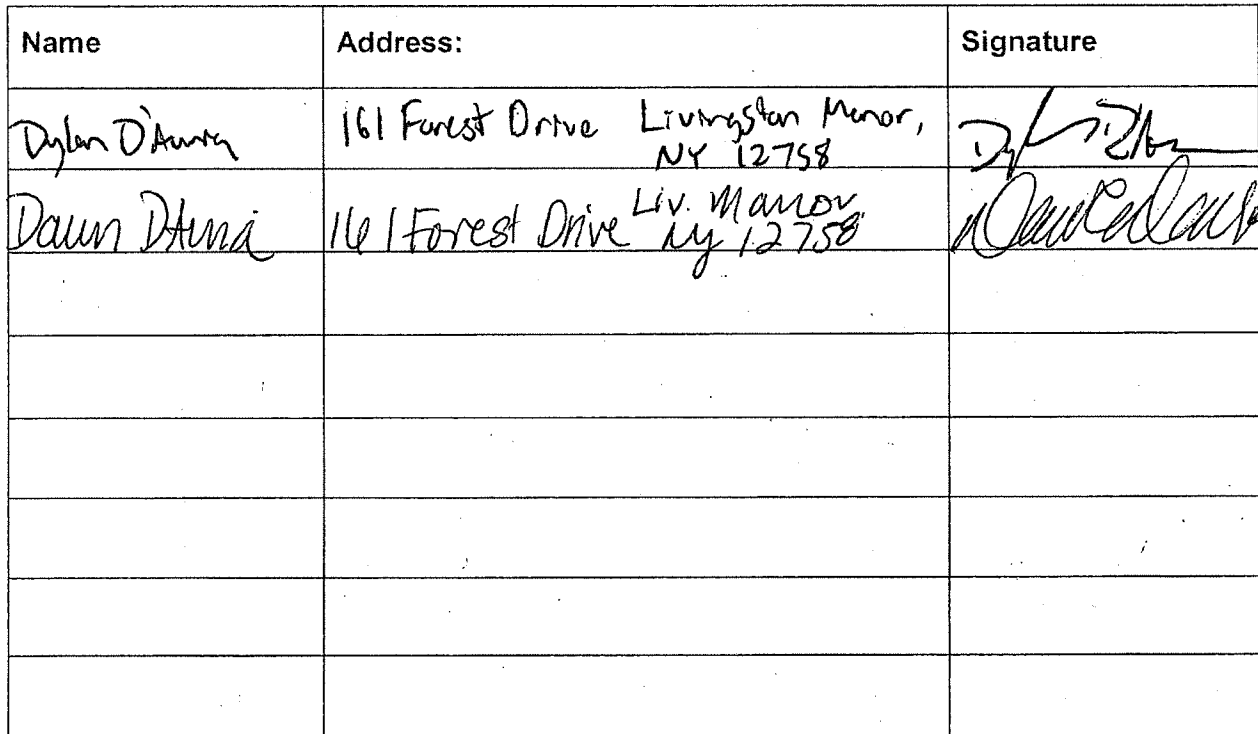 Name Address: Signature
Dylan D'Auria 161 Forest Drive Livingston Manor,
NY 12758
Dawn D'Auria 161 Forest Drive Liv. Manor,
NY 12758